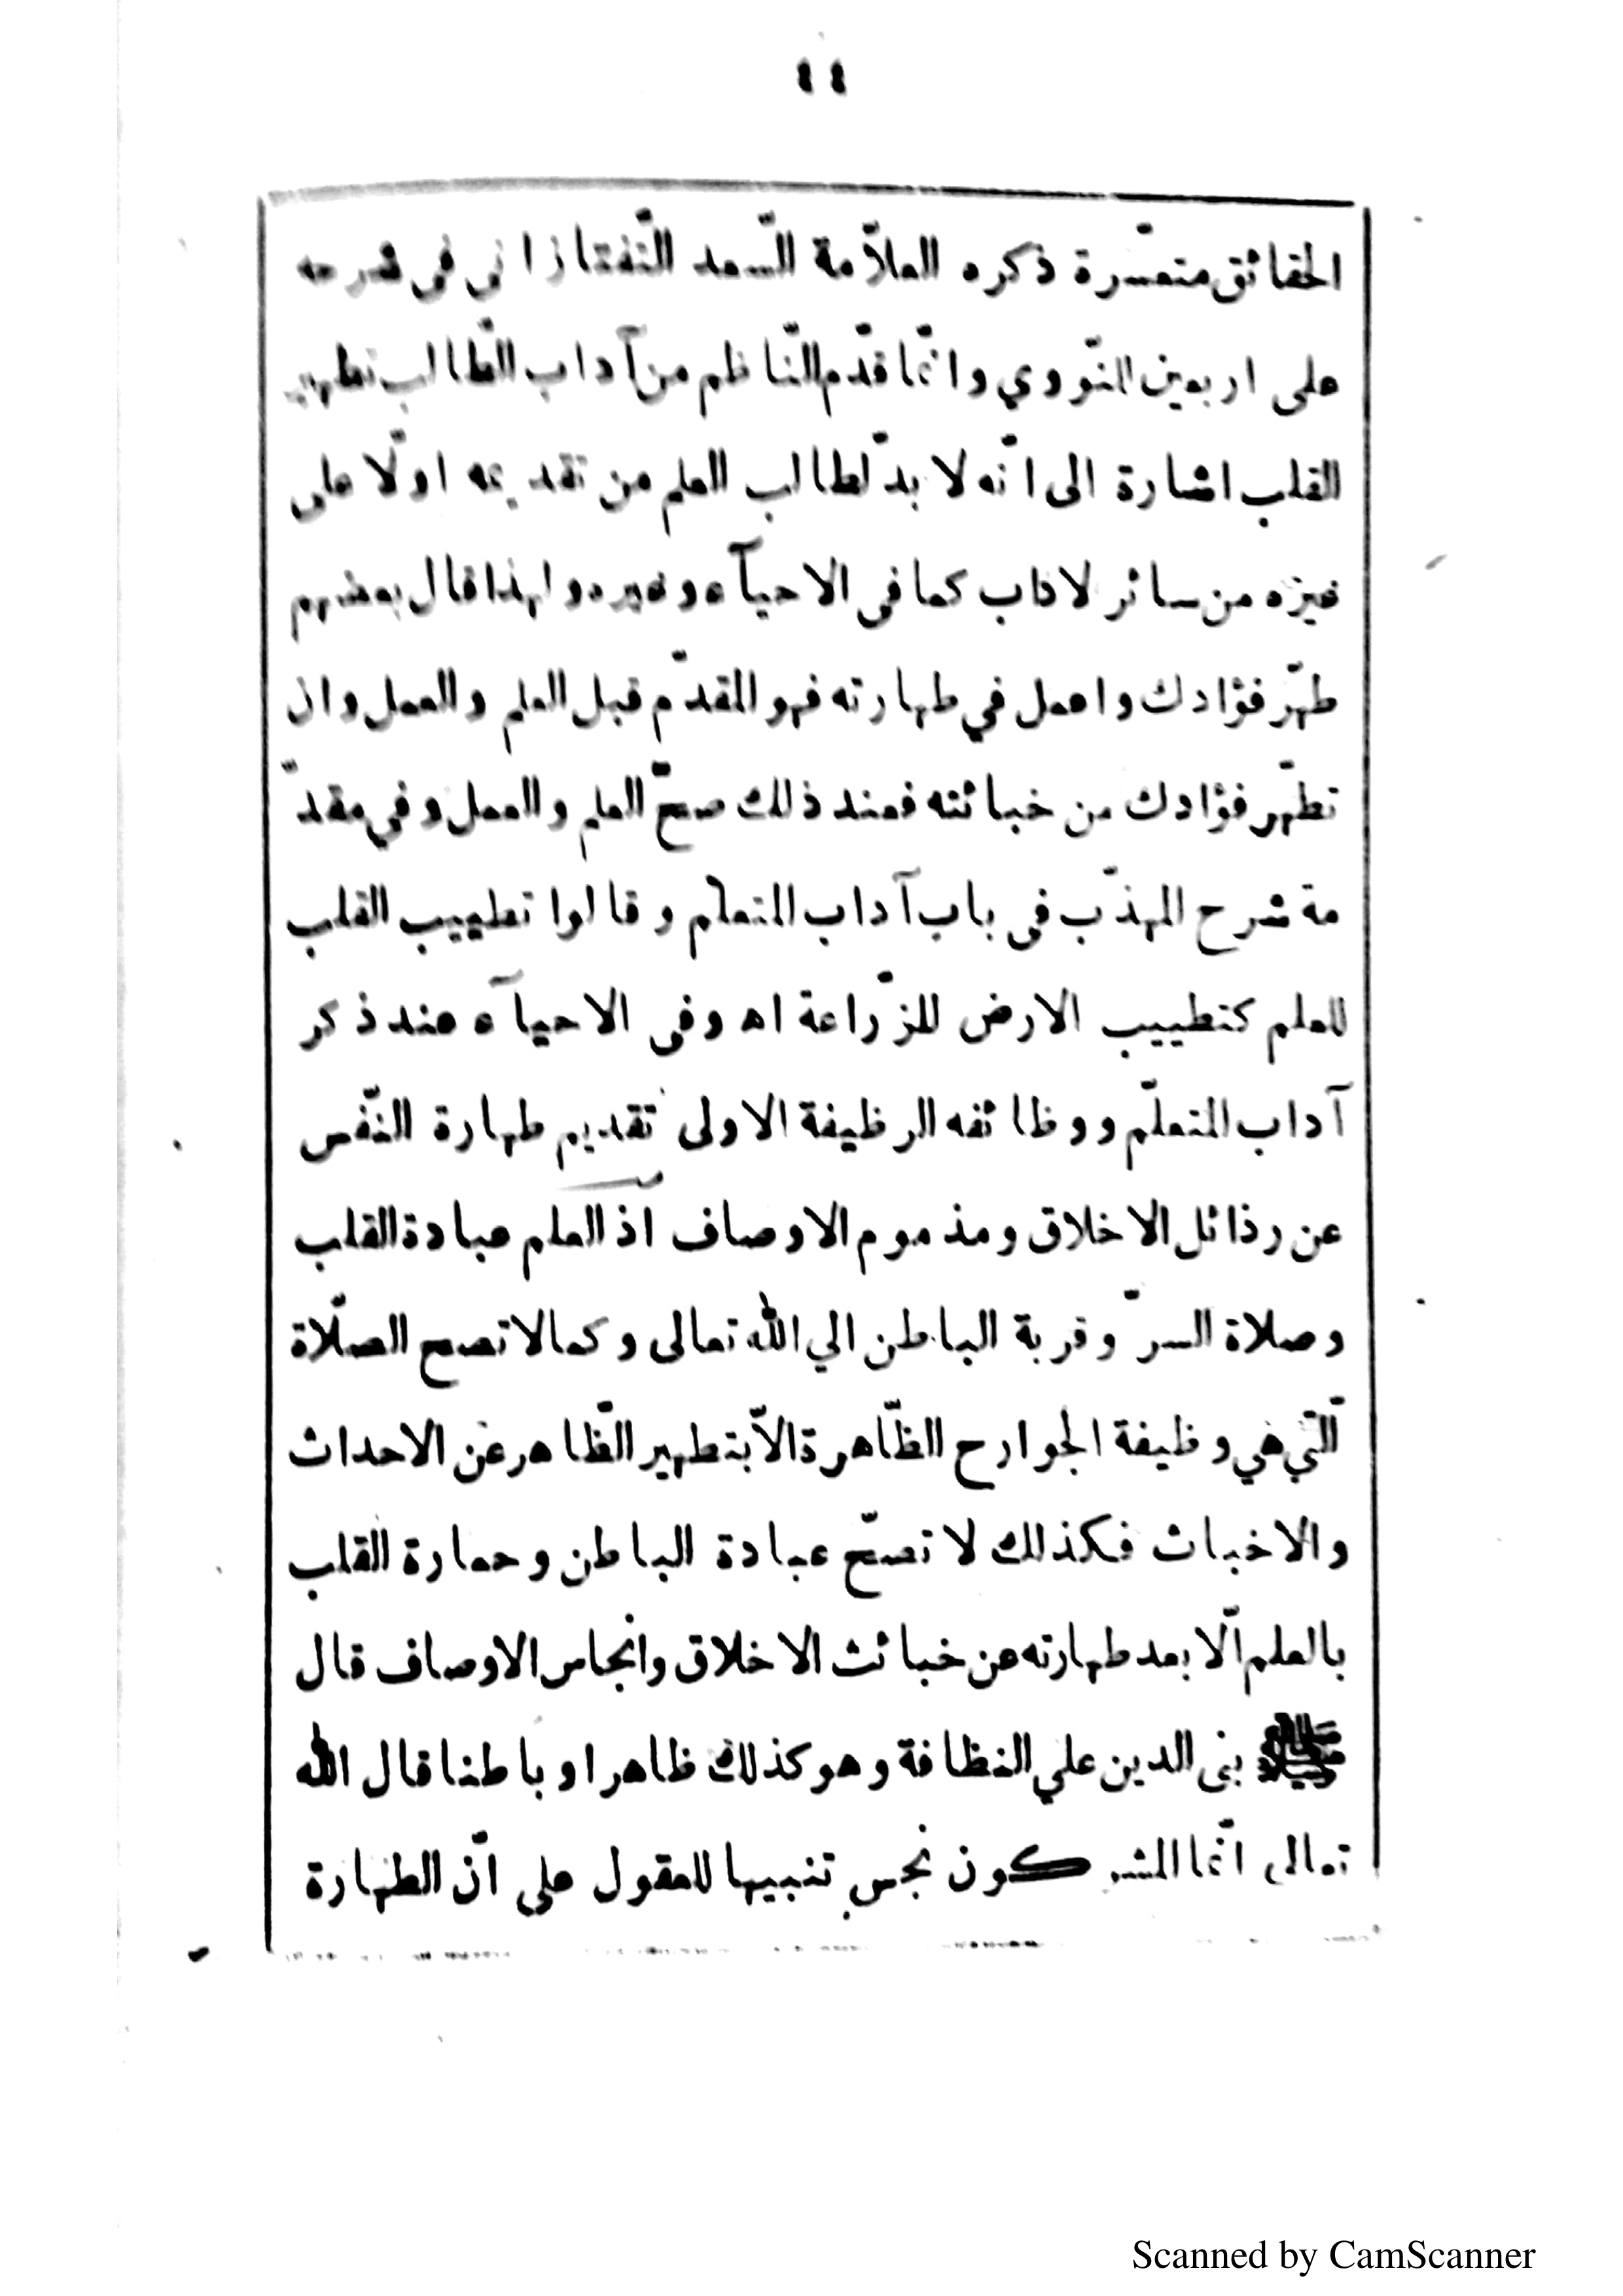 ٤٤
الحقائق متعسّرة ذكره العلاّمة السّعد التّفتازاني في شرحه
على اربعين النّووي وانّما قدّم النّاظم من آداب الطّالب تطهير
القلب اشارة الى انّه لا بدّ لطالب العلم من تقديمه اوّلا على
غيره من سائر لاداب كما في الاحيآء وغيره ولهذا قال بعضهم
طهّر فؤادك واعمل في طهارته فهو المقدّم قبل العلم والعمل وان
تطهّر فؤادك من خبائثه فعند ذلك صحّ العلم والعمل وفي مقدّ
مة شرح المهذّب في باب آداب المتعلّم وقالوا تطييب القلب
للعلم كتطييب الارض للزّراعة اه وفى الاحيآء عند ذكر
آداب المتعلّم ووظائفه الوظيفة الاولى تقديم طهارة النّفس
عن رذائل الاخلاق ومذموم الاوصاف آذ العلم عبادة القلب
وصلاة السرّ وقربة الباطن الي الله تعالى وكمالا تصح الصّلاة
الّتي هي وظيفة الجوارح الظّاهرة الاّ بتطهير الظّاهر عن الاحداث
والاخباث فكذلك لا تصحّ عبادة الباطن وعمارة القلب
بالعلم الّا بعد طهارته عن خبائث الاخلاق وانجاس الاوصاف قال
ﷺ بنى الدين علي النظافة وهو كذلك ظاهرا وباطنا قال الله
تعالى انّما المشركون نجس تنبيها للعقول على انّ الطهارة
Scanned by CamScanner